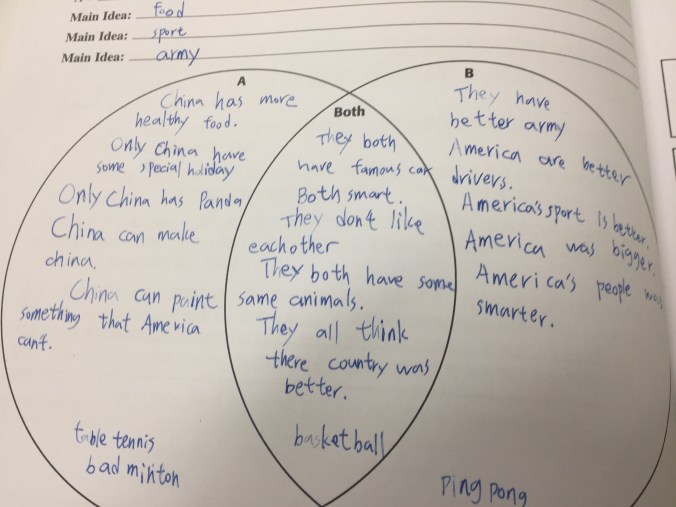 Main Idea: food
Main Idea: sport
Main Idea: army
A
China has more
healthy food.
Only China have
some special holiday
Only China has Panda
China can make
china.
China can paint
something that America
can't.
table tennis
badminton
Both
They both
have famous car
Both smart.
They don't like
eachother
They both have some
same animals.
They all think
there country was
better.
basketball
B
They have
better army
America are better
drivers.
America's sport is better.
America was bigger.
America's people was
smarter.
Ping pong